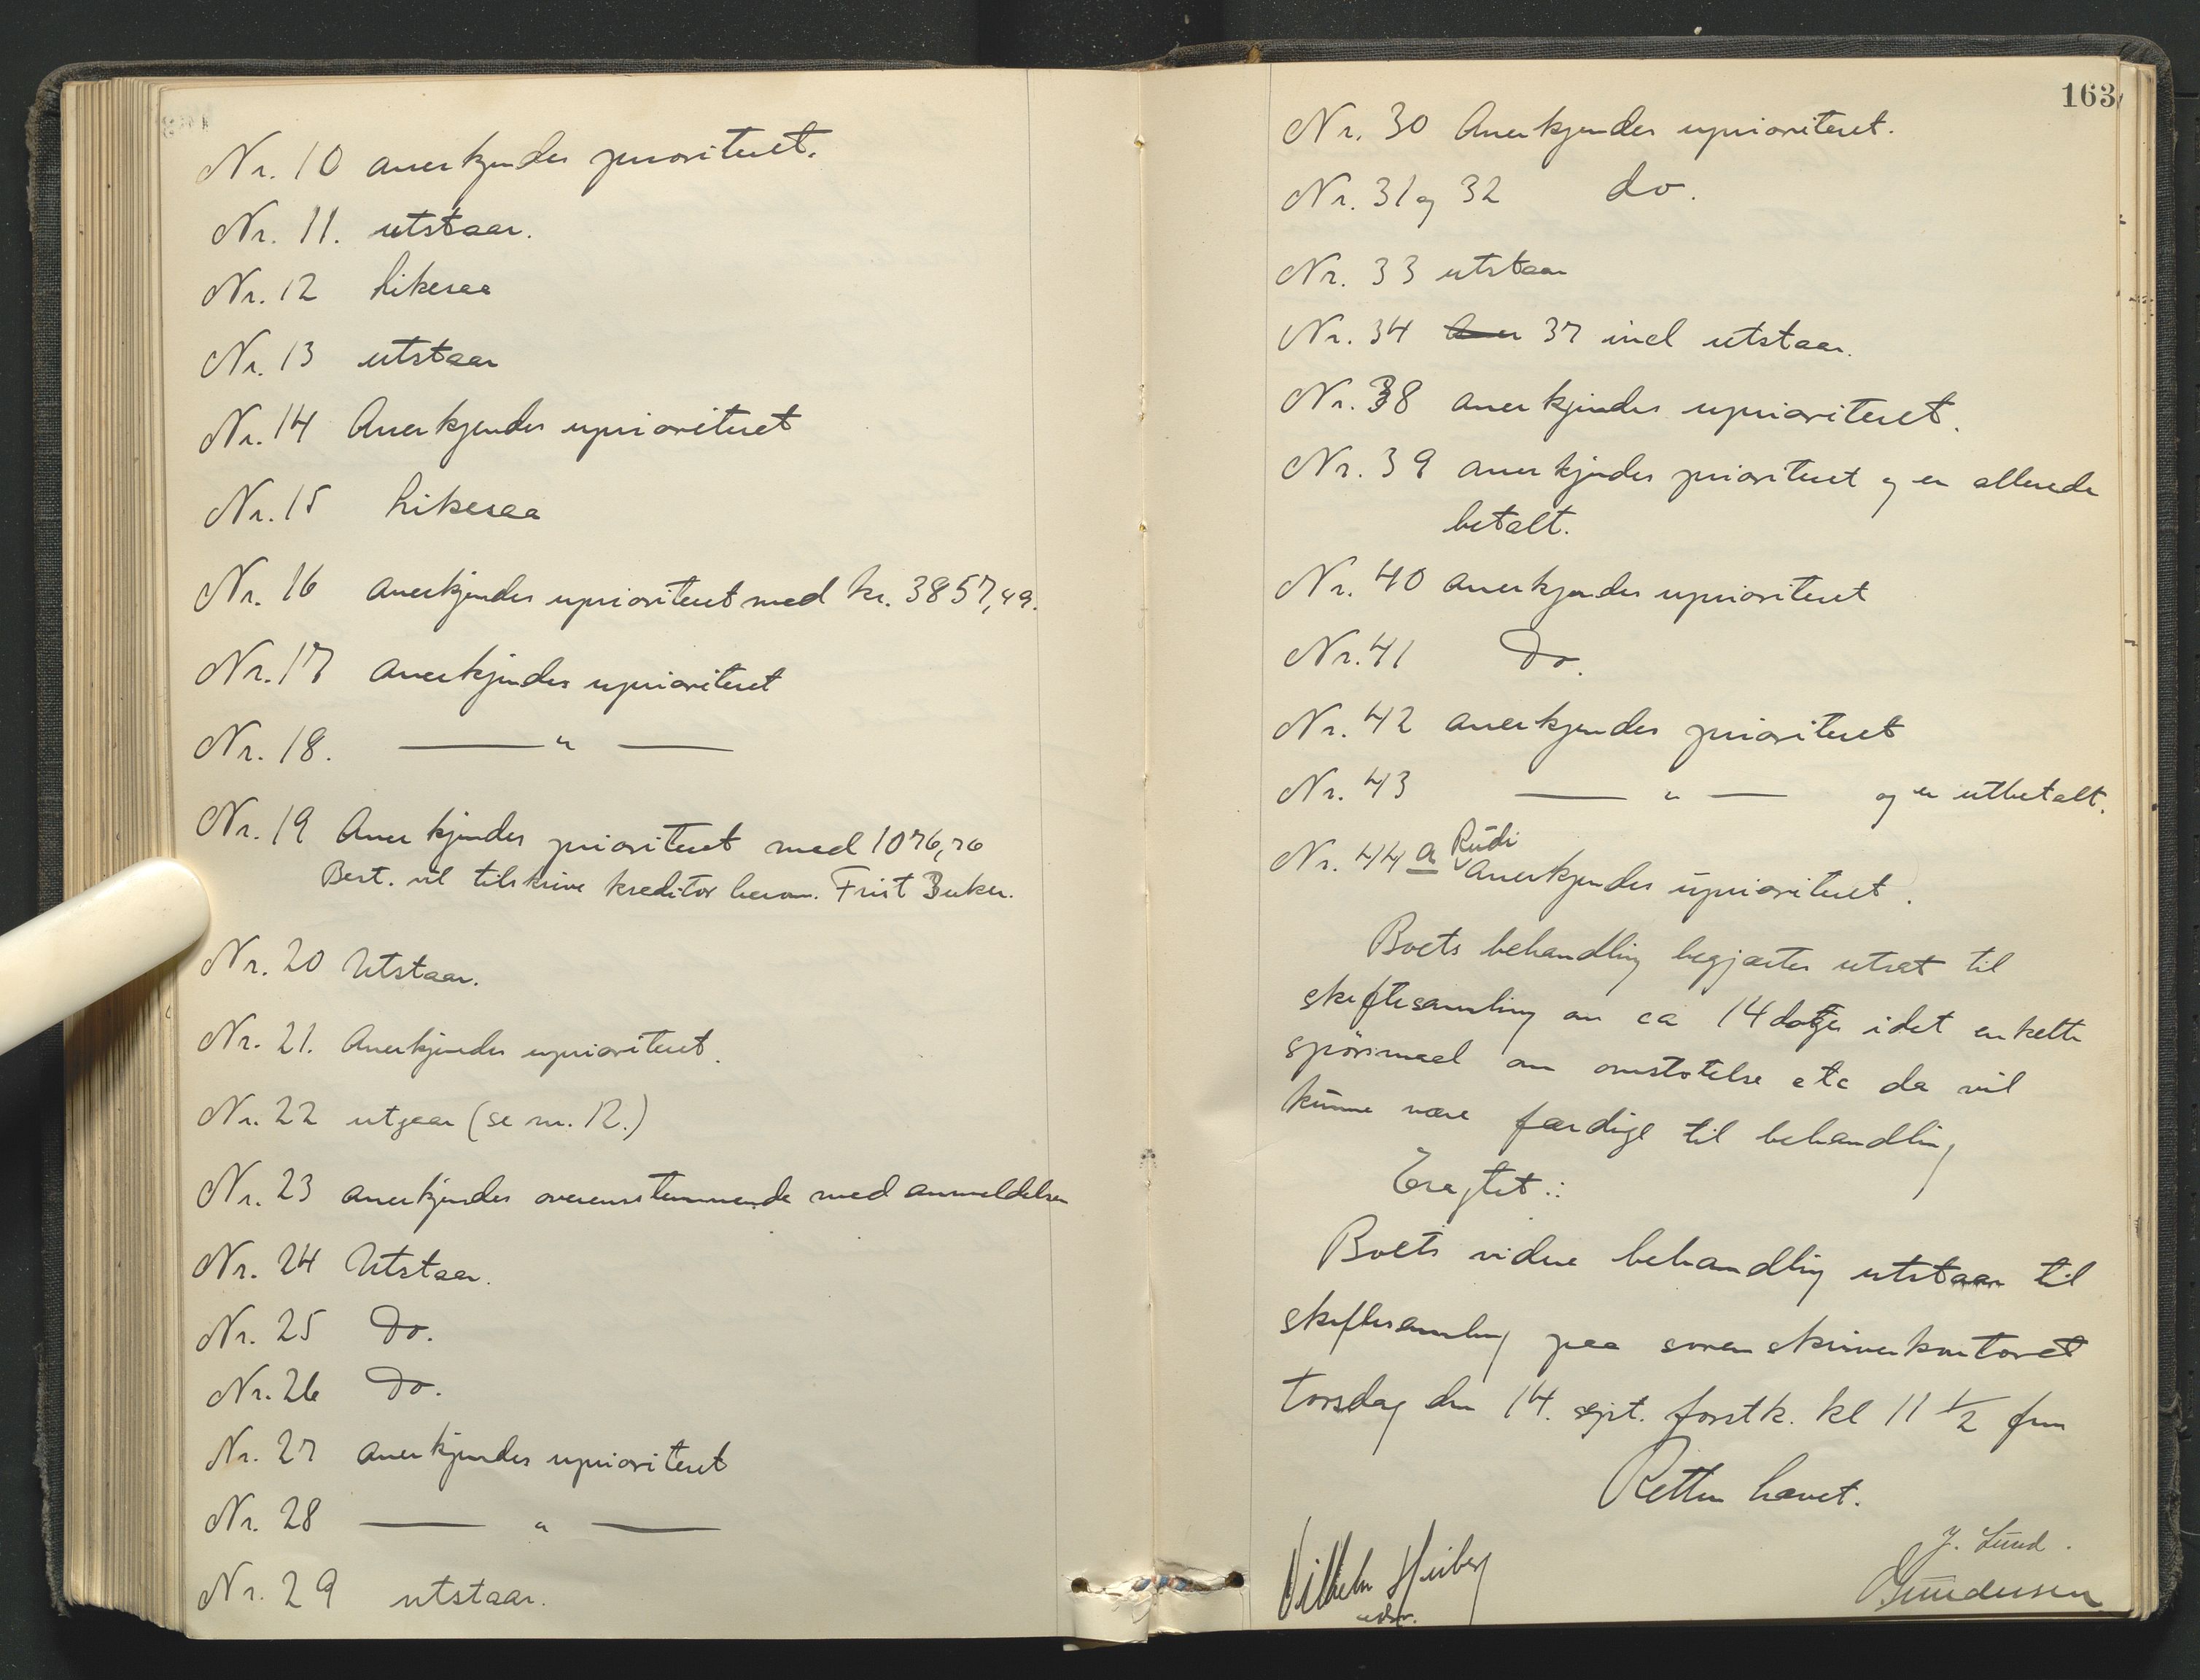 Nr. 10 anerkjendes prioritert.
Nr. 11. utstaar.
Nr. 12 Likesaa
Nr. 13 utstaar
Nr. 14 Anerkjendes uprioritert
Nr. 15 Likesaa
Nr. 16 anerkjendes uprioritert med kr. 3857,49.
Nr. 17 anerkjendes uprioritert
Nr. 18. — " —
Nr. 19 Anerkjendes prioritert med 1076,76
Best. vil tilskrive kreditor herom. Frist 3 uker.
Nr. 20 Utstaar.
Nr. 21. Anerkjendes uprioritert.
Nr. 22 utgaar (se nr. 12.)
Nr. 23 anerkjendes overensstemmende med anmeldelsen
Nr. 24 Utstaar.
Nr. 25 Do.
Nr. 26 Do.
Nr. 27 anerkjendes uprioritert
Nr. 28 — " —
Nr. 29 utstaar.
163
Nr. 30 Anerkjendes uprioritert.
Nr. 31 og 32 do.
Nr. 33 utstaar
Nr. 34 Aner 37 incl utstaar.
Nr. 38 anerkjendes uprioritert.
Nr. 39 anerkjendes prioritert og er allerede
betalt.
Nr. 40 anerkjendes uprioritert
Nr. 41 Do.
Nr. 42 anerkjendes prioritert
Nr. 43 — " — og er utbetalt.
Nr. 44 a Rudi Anerkjendes uprioritert.
Boets behandling begjæres utsat til
skiftesamling om ca 14 dage idet enkelte
spörsmaal om omstøtelse etc da vil
kunne være færdige til behandling
Eragtet:
Boets videre behandling utstaar til
skiftesamling paa sorenskriverkontoret
torsdag den 14. sept. førstk. kl 11 1/2 fm
Retten hævet.
J. Lund.
Vilhelm Heiberg
Gundersen